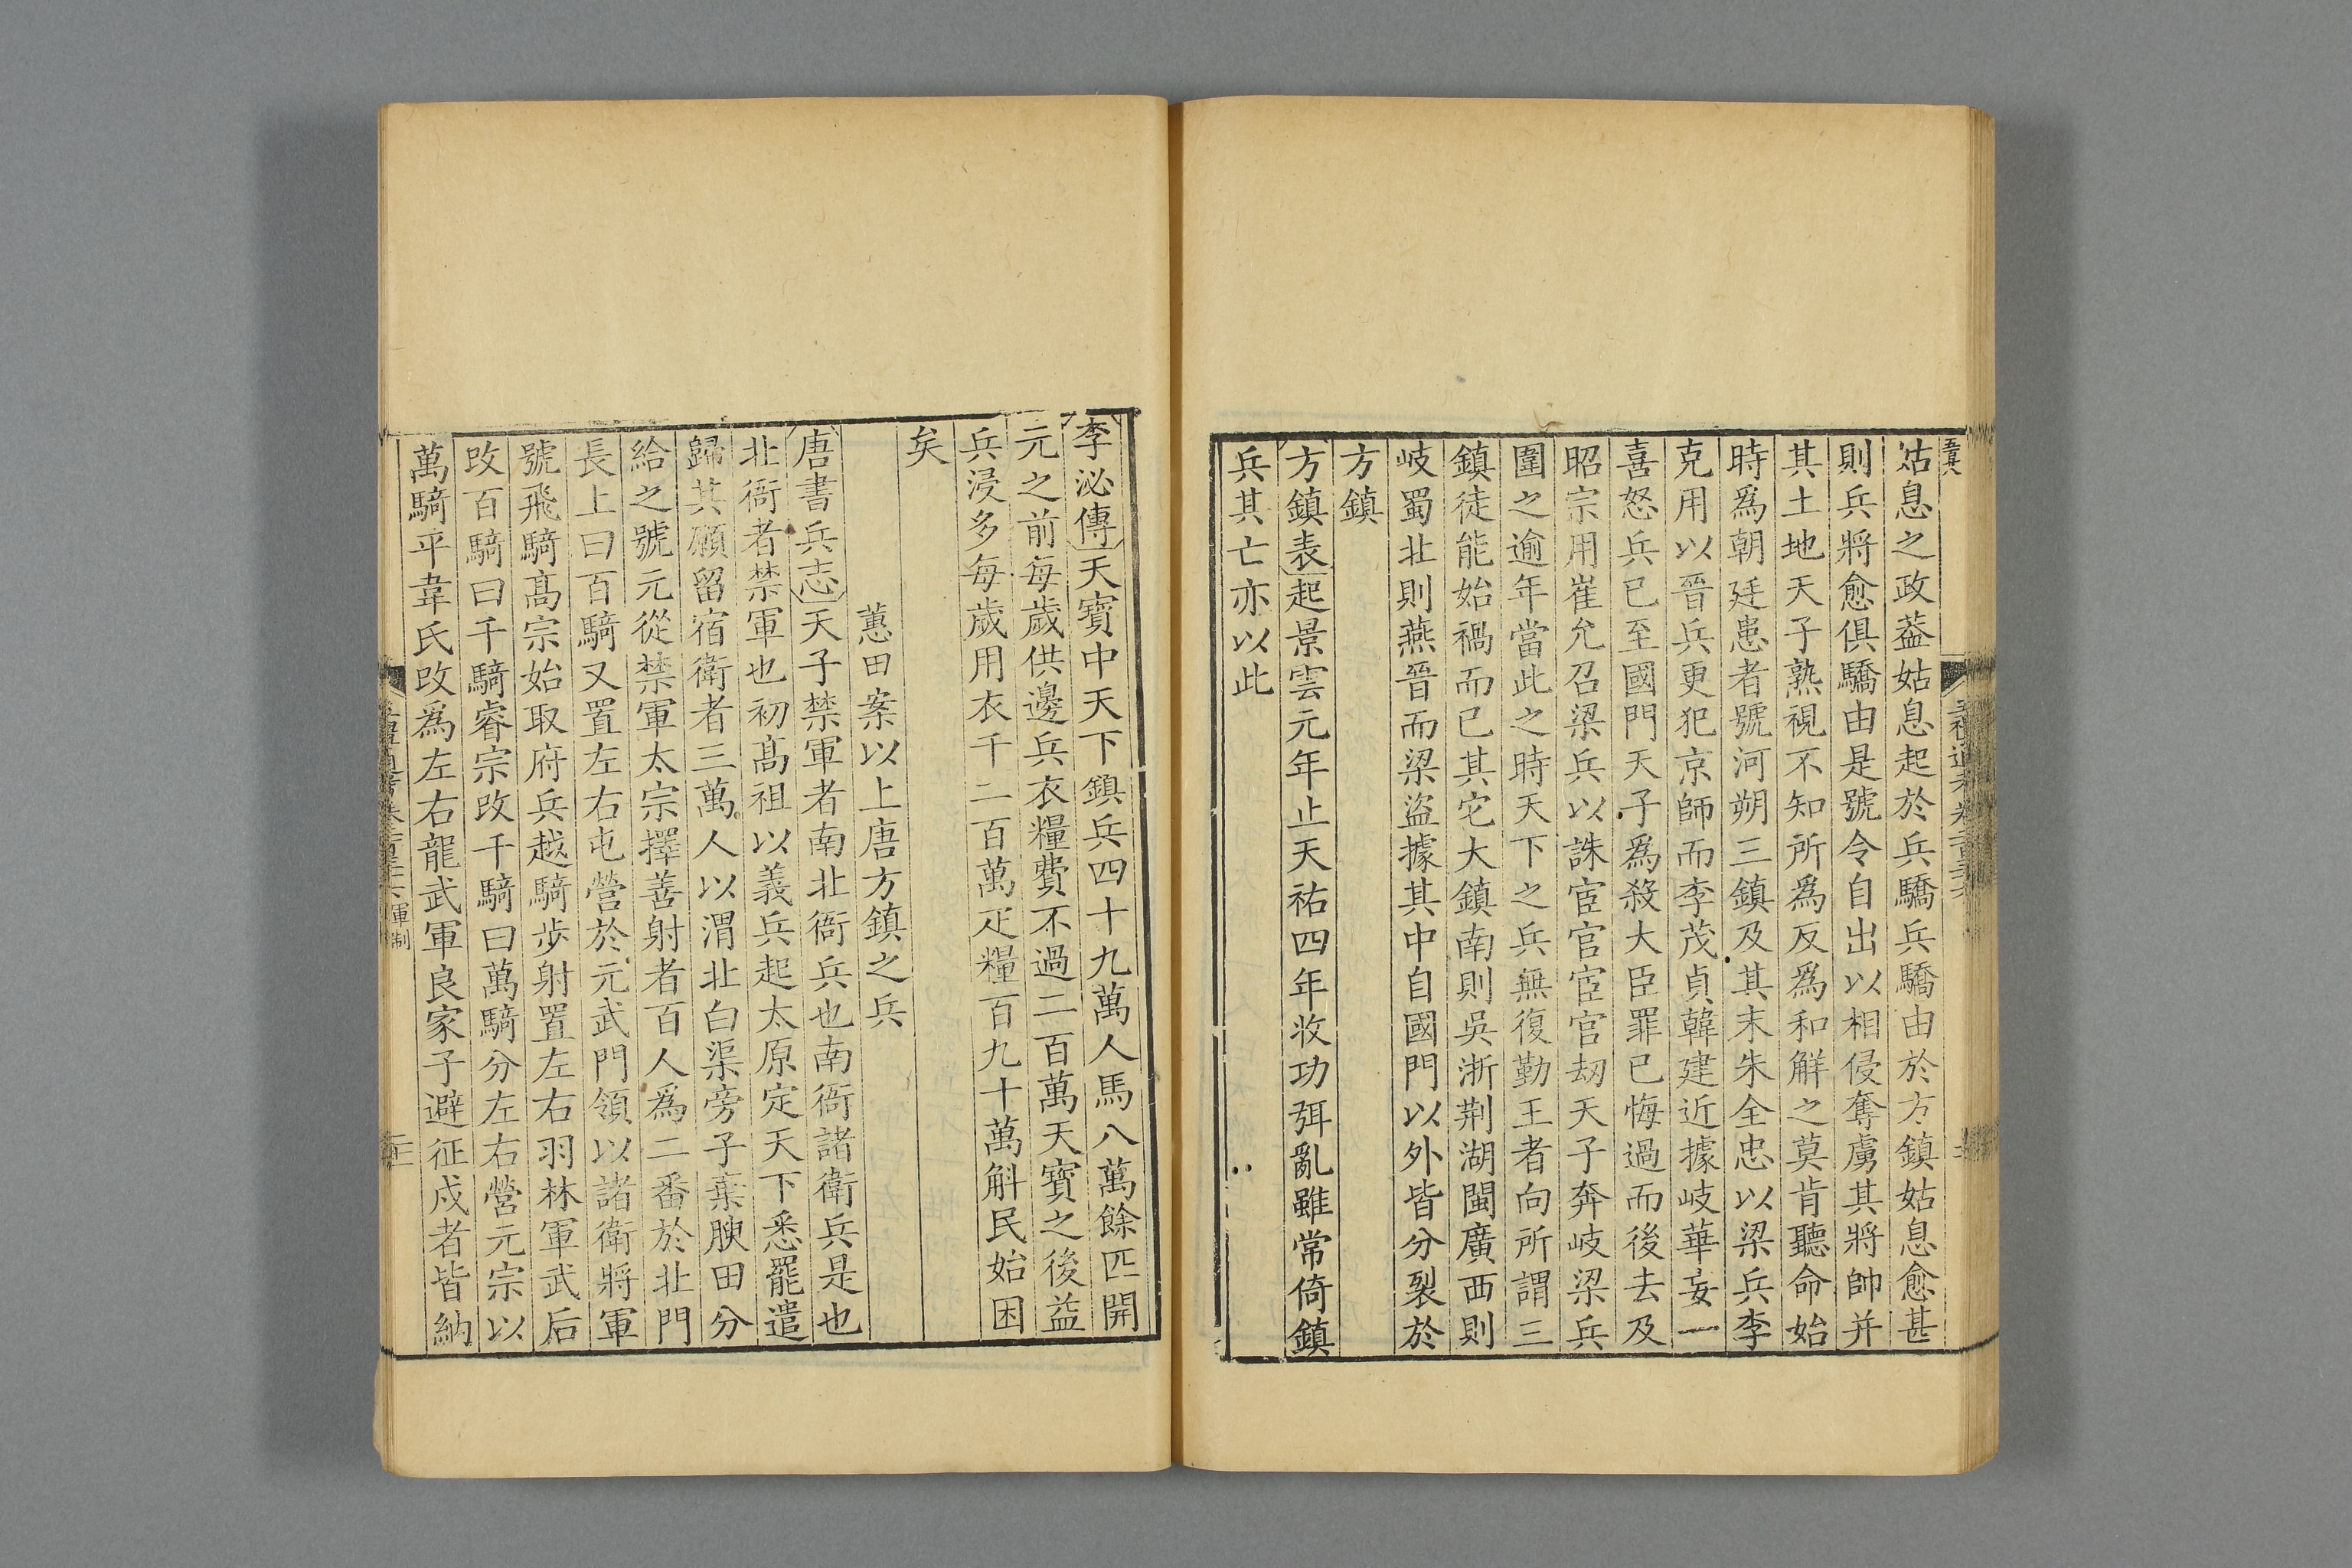 姑息之政葢姑息起於兵驕兵驕由於方鎮姑息愈甚
則兵將愈俱驕由是號令自出以相侵奪虜其將帥并
其土地天子熟視不知所爲反爲和解之莫肯聽命始
時爲朝廷患者號河朔三鎮及其末朱全忠以梁兵李
克用以晉兵更犯京師而李茂貞韓建近據岐華妄一
喜怒兵已至國門天子爲殺大臣罪已悔過而後去及
昭宗用崔允召梁兵以誅宦官宦官刼天子奔岐梁兵
圍之逾年當此之時天下之兵無復勤王者向所謂三
鎮徒能始禍而已其它大鎮南則吳浙荆湖閩廣西則
岐蜀北則燕晉而梁盜據其中自國門以外皆分裂於
方鎮
方鎮表起景雲元年止天祐四年收功弭亂雖常倚鎮
兵其亡亦以此
李泌傳天寶中天下鎮兵四十九萬人馬八萬餘匹開
元之前每歲供邊兵衣糧費不過二百萬天寶之後益
兵浸多每歲用衣千二百萬疋糧百九十萬斛民始困
矣
蕙田案以上唐方鎮之兵
唐書兵志天子禁軍者南北衙兵也南衙諸衛兵是也
北衙者禁軍也初髙祖以義兵起太原定天下悉罷遣
歸其願留宿衛者三萬人以渭北白渠旁子棄腴田分
給之號元從禁軍太宗擇善射者百人爲二番於北門
長上曰百騎又置左右屯營於元武門領以諸衛將軍
號飛騎髙宗始取府兵越騎步射置左右羽林軍武后
改百騎曰千騎睿宗改千騎曰萬騎分左右營元宗以
萬騎平韋氏改爲左右龍武軍良家子避征戍者皆納
軍制